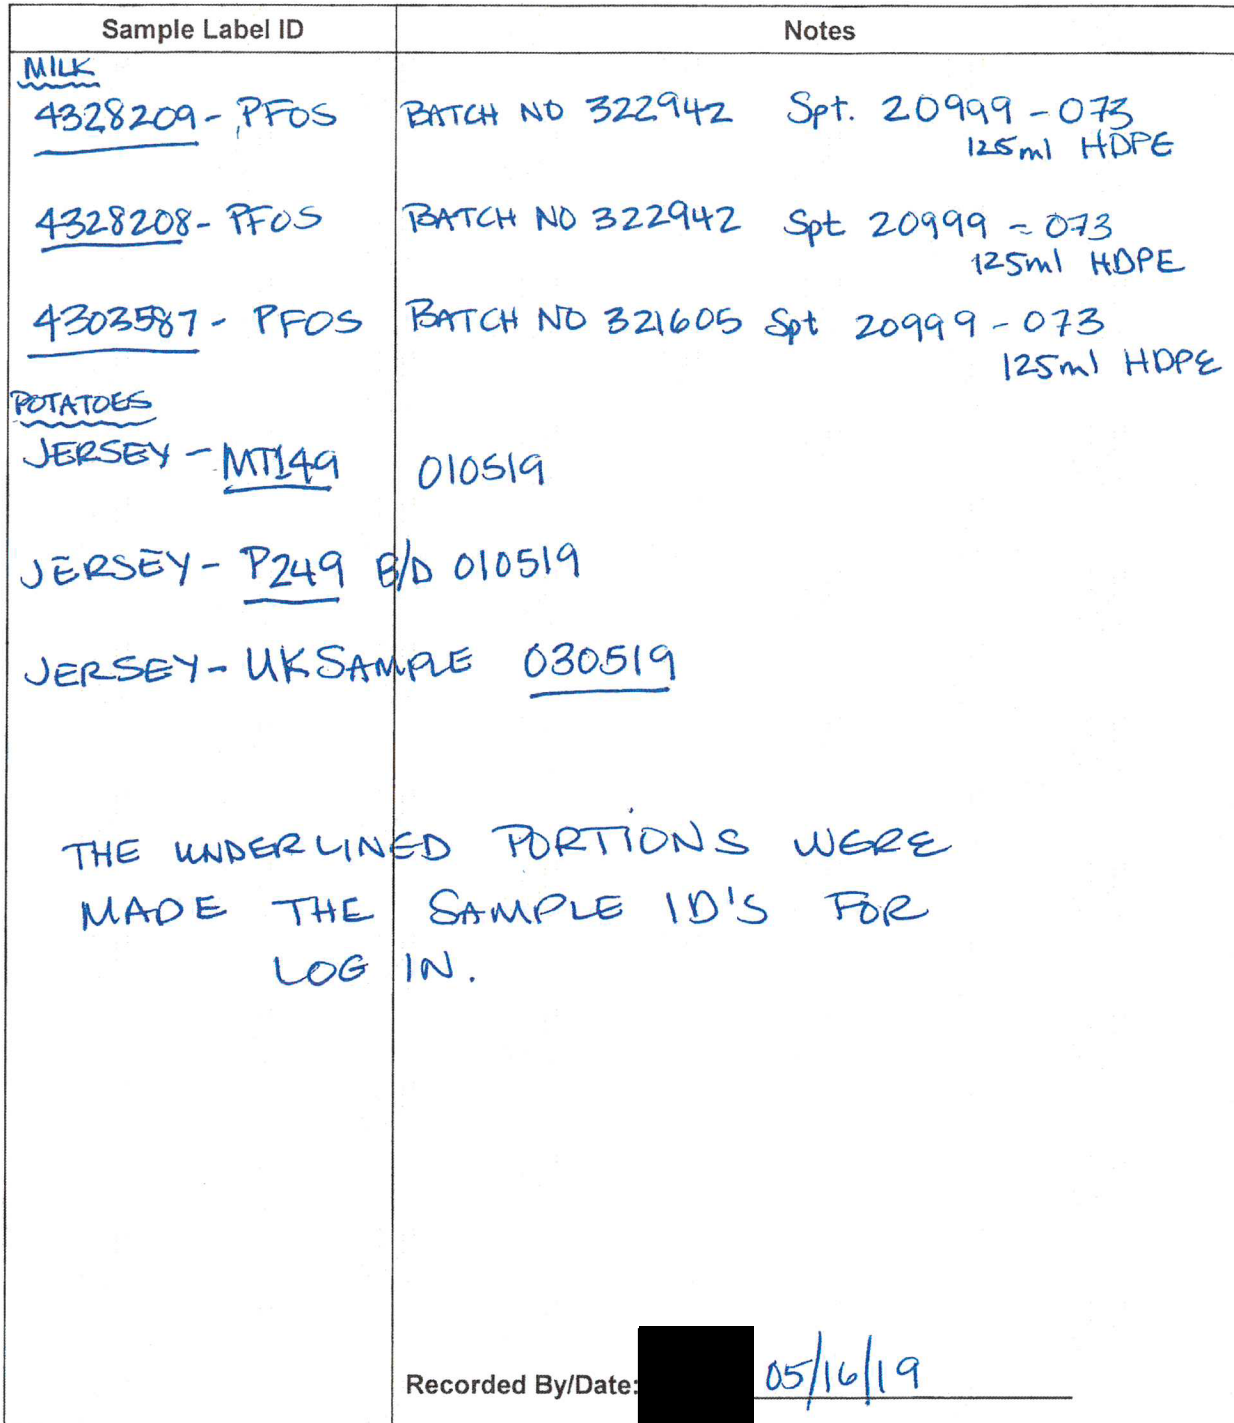 Sample Label ID Notes
MILK
4328209 - PFOS BATCH NO 322942 Spt. 20999 - 073
125ml HDPE
4328208 - PFOS BATCH NO 322942 Spt 20999 - 073
125ml HDPE
4303587 - PFOS BATCH NO 321605 Spt 20999 - 073
125ml HDPE
POTATOES
JERSEY - MT149 010519
JERSEY - P249 B/D 010519
JERSEY - UK SAMPLE 030519
THE UNDERLINED PORTIONS WERE
MADE THE SAMPLE ID'S FOR
LOG IN.
Recorded By/Date: 05/16/19